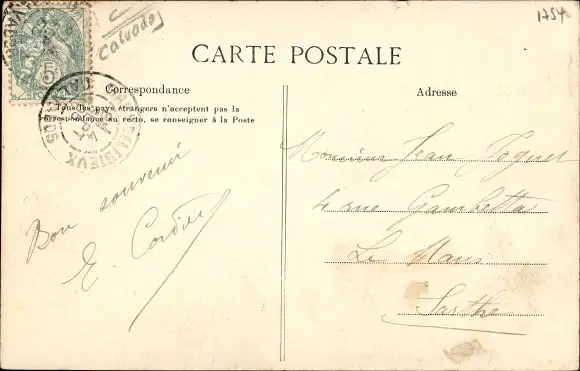 1754
Calvados
CARTE POSTALE
Correspondance
Tous les pays étrangers n'acceptent pas la
correspondance au recto, se renseigner à la Poste
Adresse
LISIEUX
CALVADOS
5
Bon souvenir
E. Cordier
Monsieur Jean Foquet
4 rue Gambetta
Le Mans
Sarthe